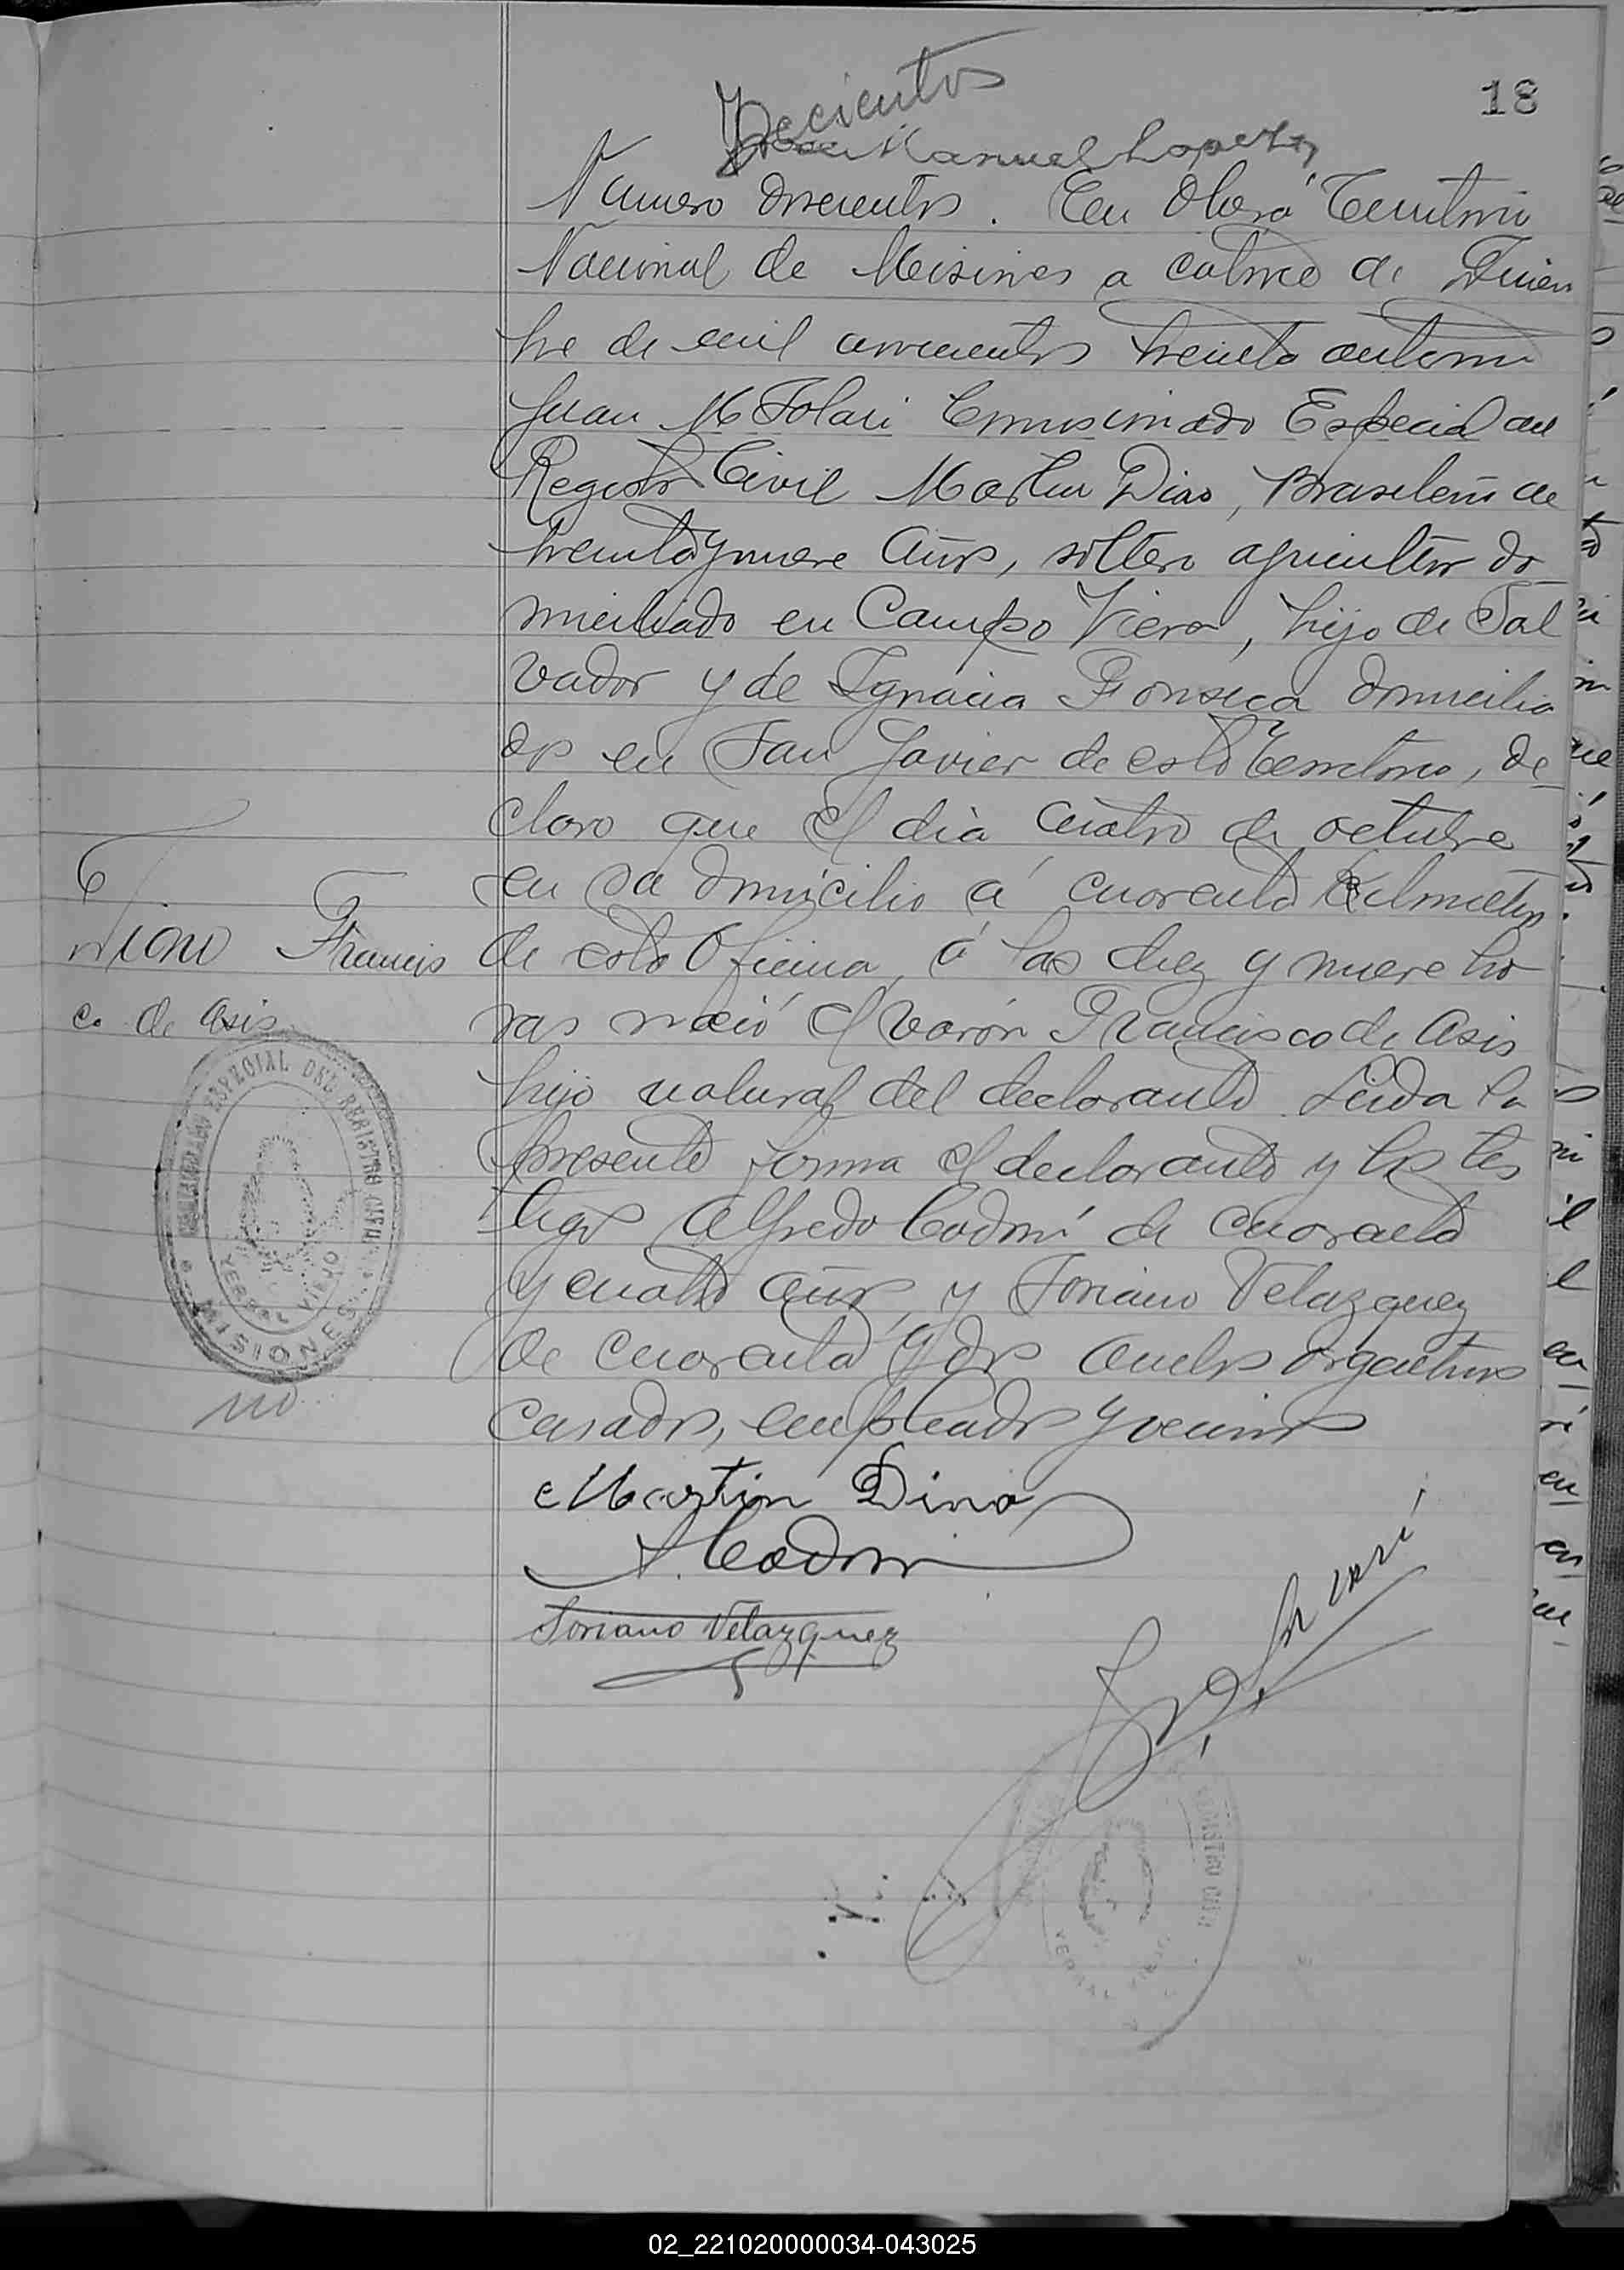 18
Docientos
Manuel Lopez
Numero doscientos. En Oberá Territorio
Nacional de Misiones a catorce de Diciem
bre de mil novecientos treinta ante mi
Juan M Solari Comisionado Especial del
Registro Civil Martin Dias, Brasileño de
treinta y nueve años, soltero agricultor do
miciliado en Campo Viera, hijo de Sal
vador y de Ignacia Fonseca domicilia
dos en San Javier de este Territorio, de
claro que el dia cuatro de octubre
en su domicilio á cuarenta kilometros
de esta Oficina, á las diez y nueve ho
ras nació el varón Francisco de Asis
hijo natural del declarante. Leida la
presente firma el declarante y los tes
tigos Alfredo Codoni de cuarenta
y cuatro años y Soriano Velazquez
de cuarenta y dos ambos argentinos
casados, empleados y vecinos
Francis
co de Asis
ESPECIAL DEL REGISTRO CIVIL
YERBAL VIEJO
MISIONES
Martin Dino
A. Codoni
Soriano Velazquez
REGISTRO CIVIL
YERBAL
02_221020000034-043025